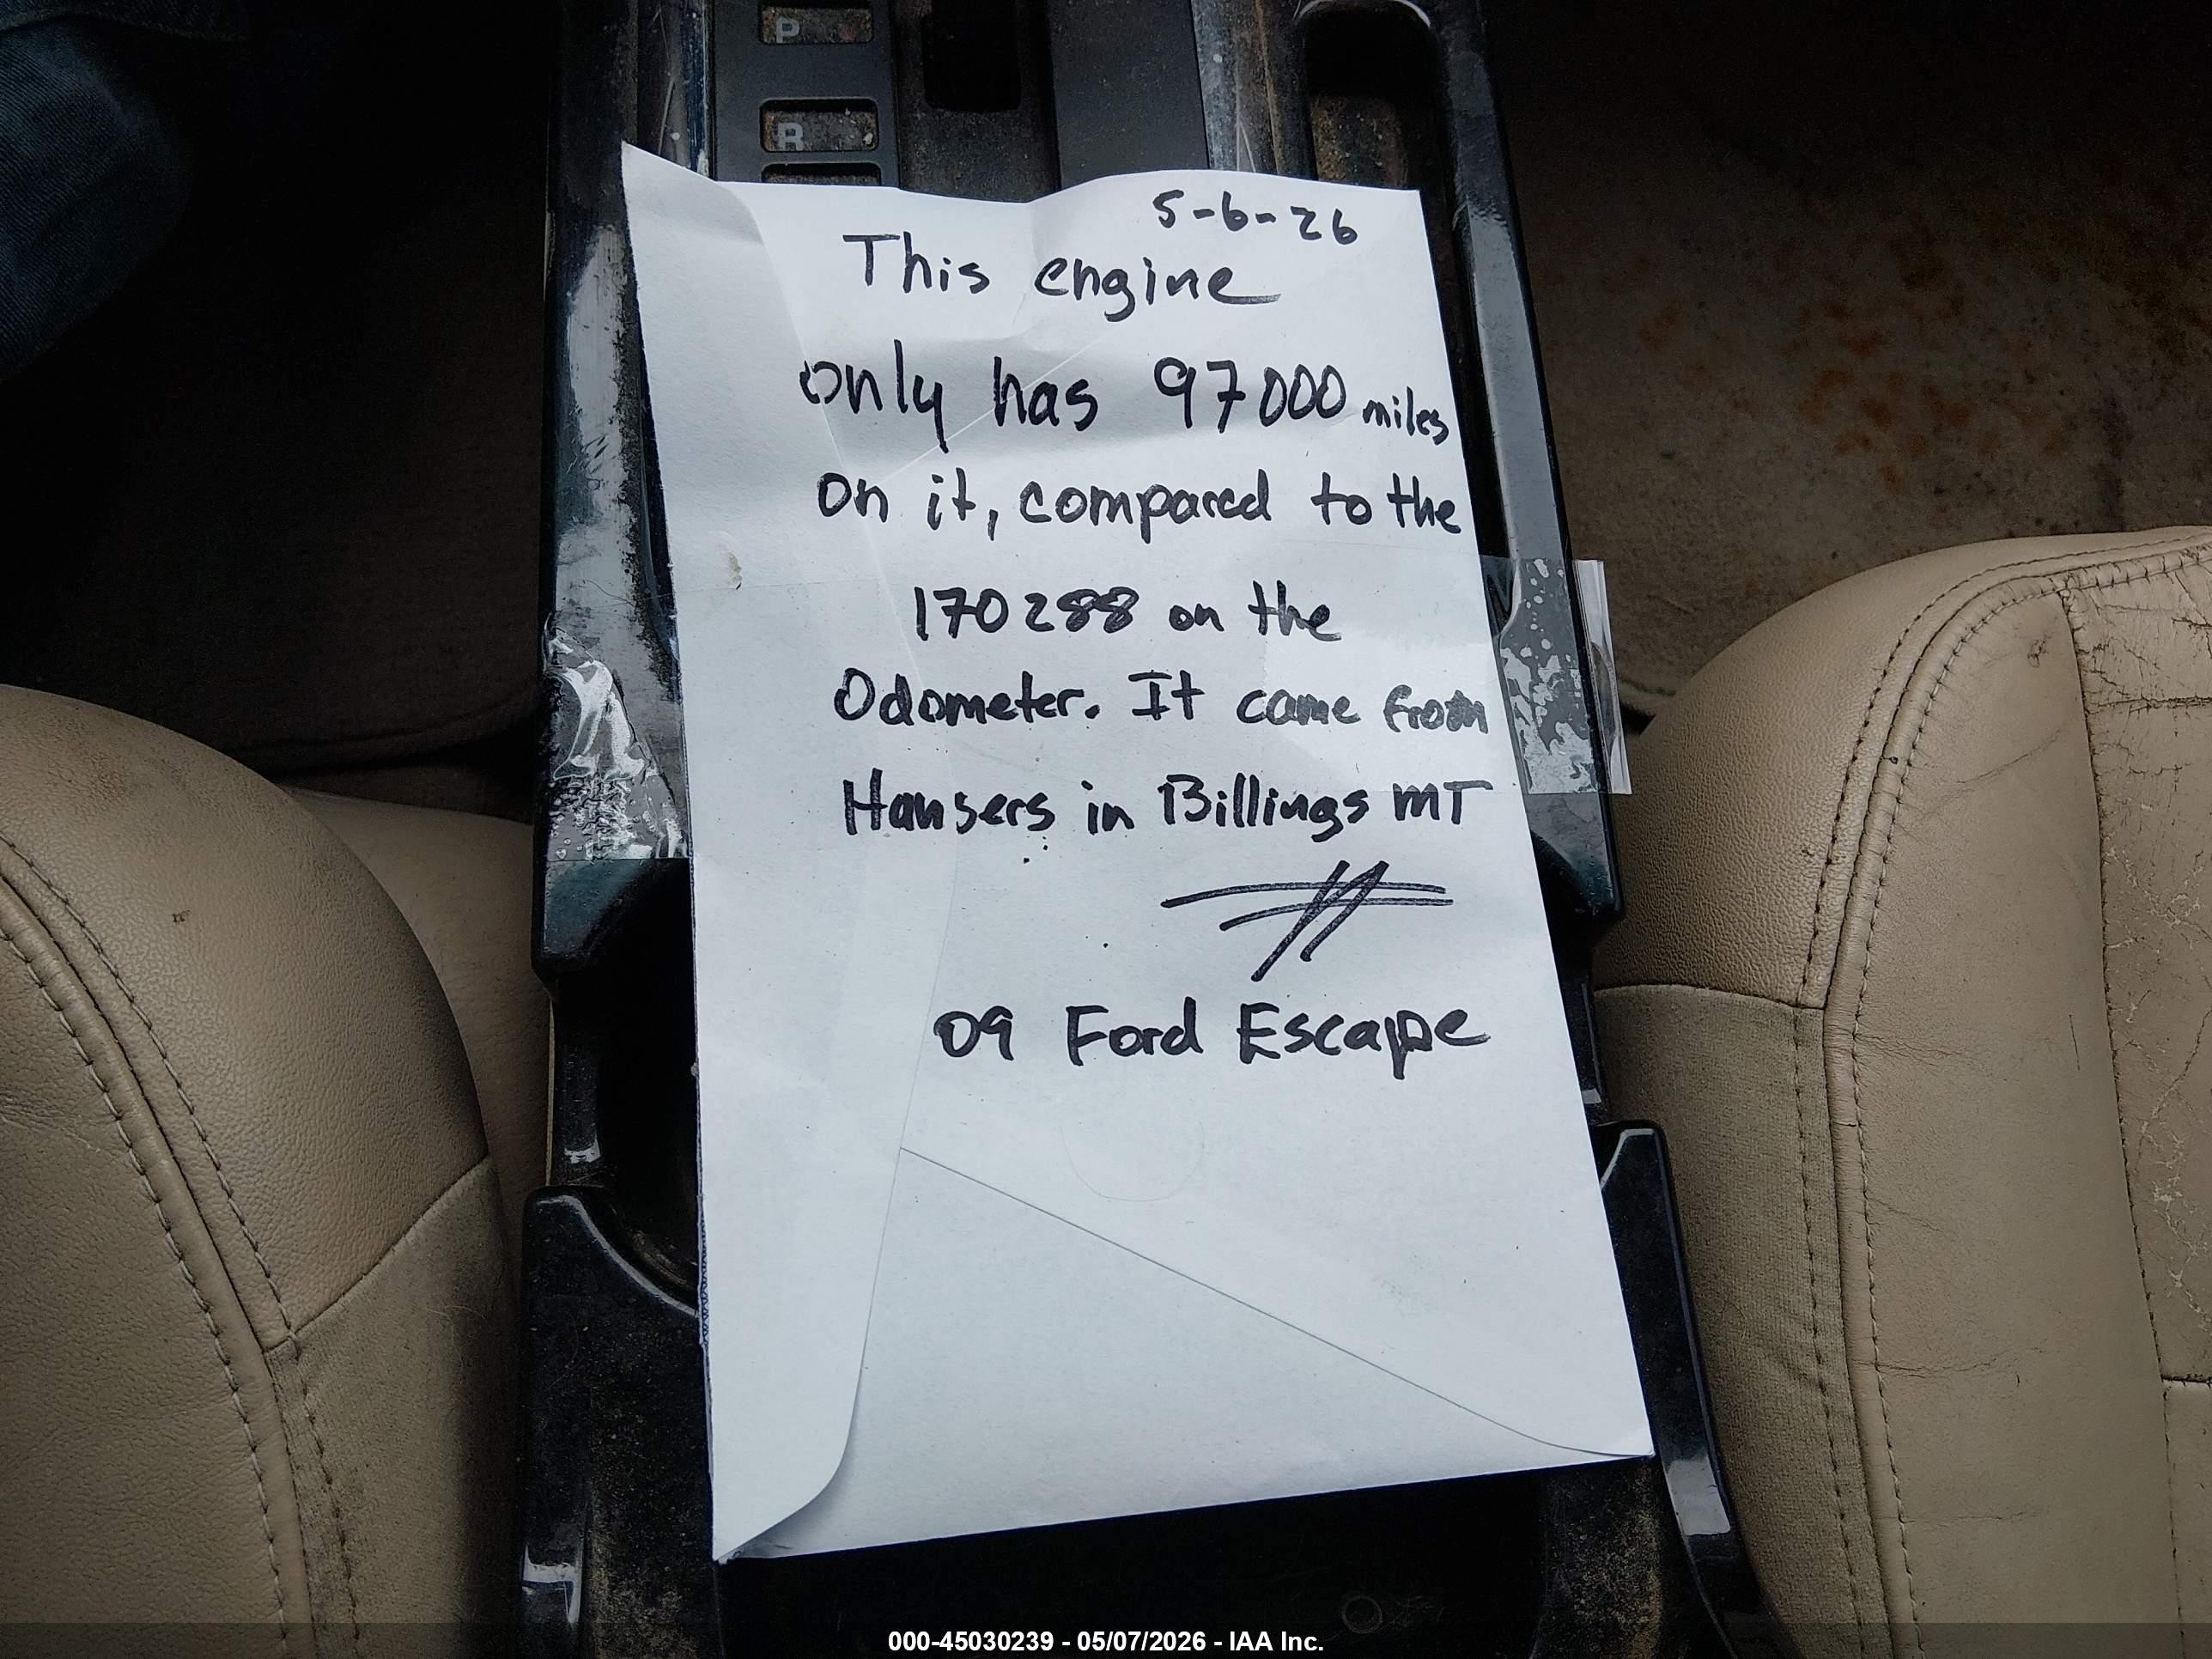 P
R
5-6-26
This engine
only has 97000 miles
on it, compared to the
170288 on the
Odometer. It came from
Hansers in Billings MT
09 Ford Escape
000-45030239 - 05/07/2026 - IAA Inc.